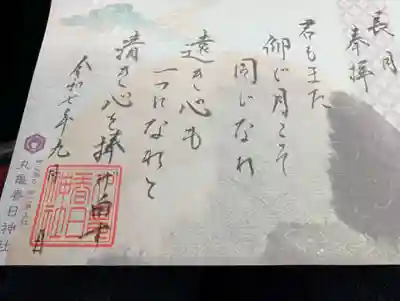 長月
奉拝
君もまた
仰ぐ月こそ
同じなれ
遠き心も
一つになれと
清き心を
令和七年九月 日
春日
神社
丸亀春日神社